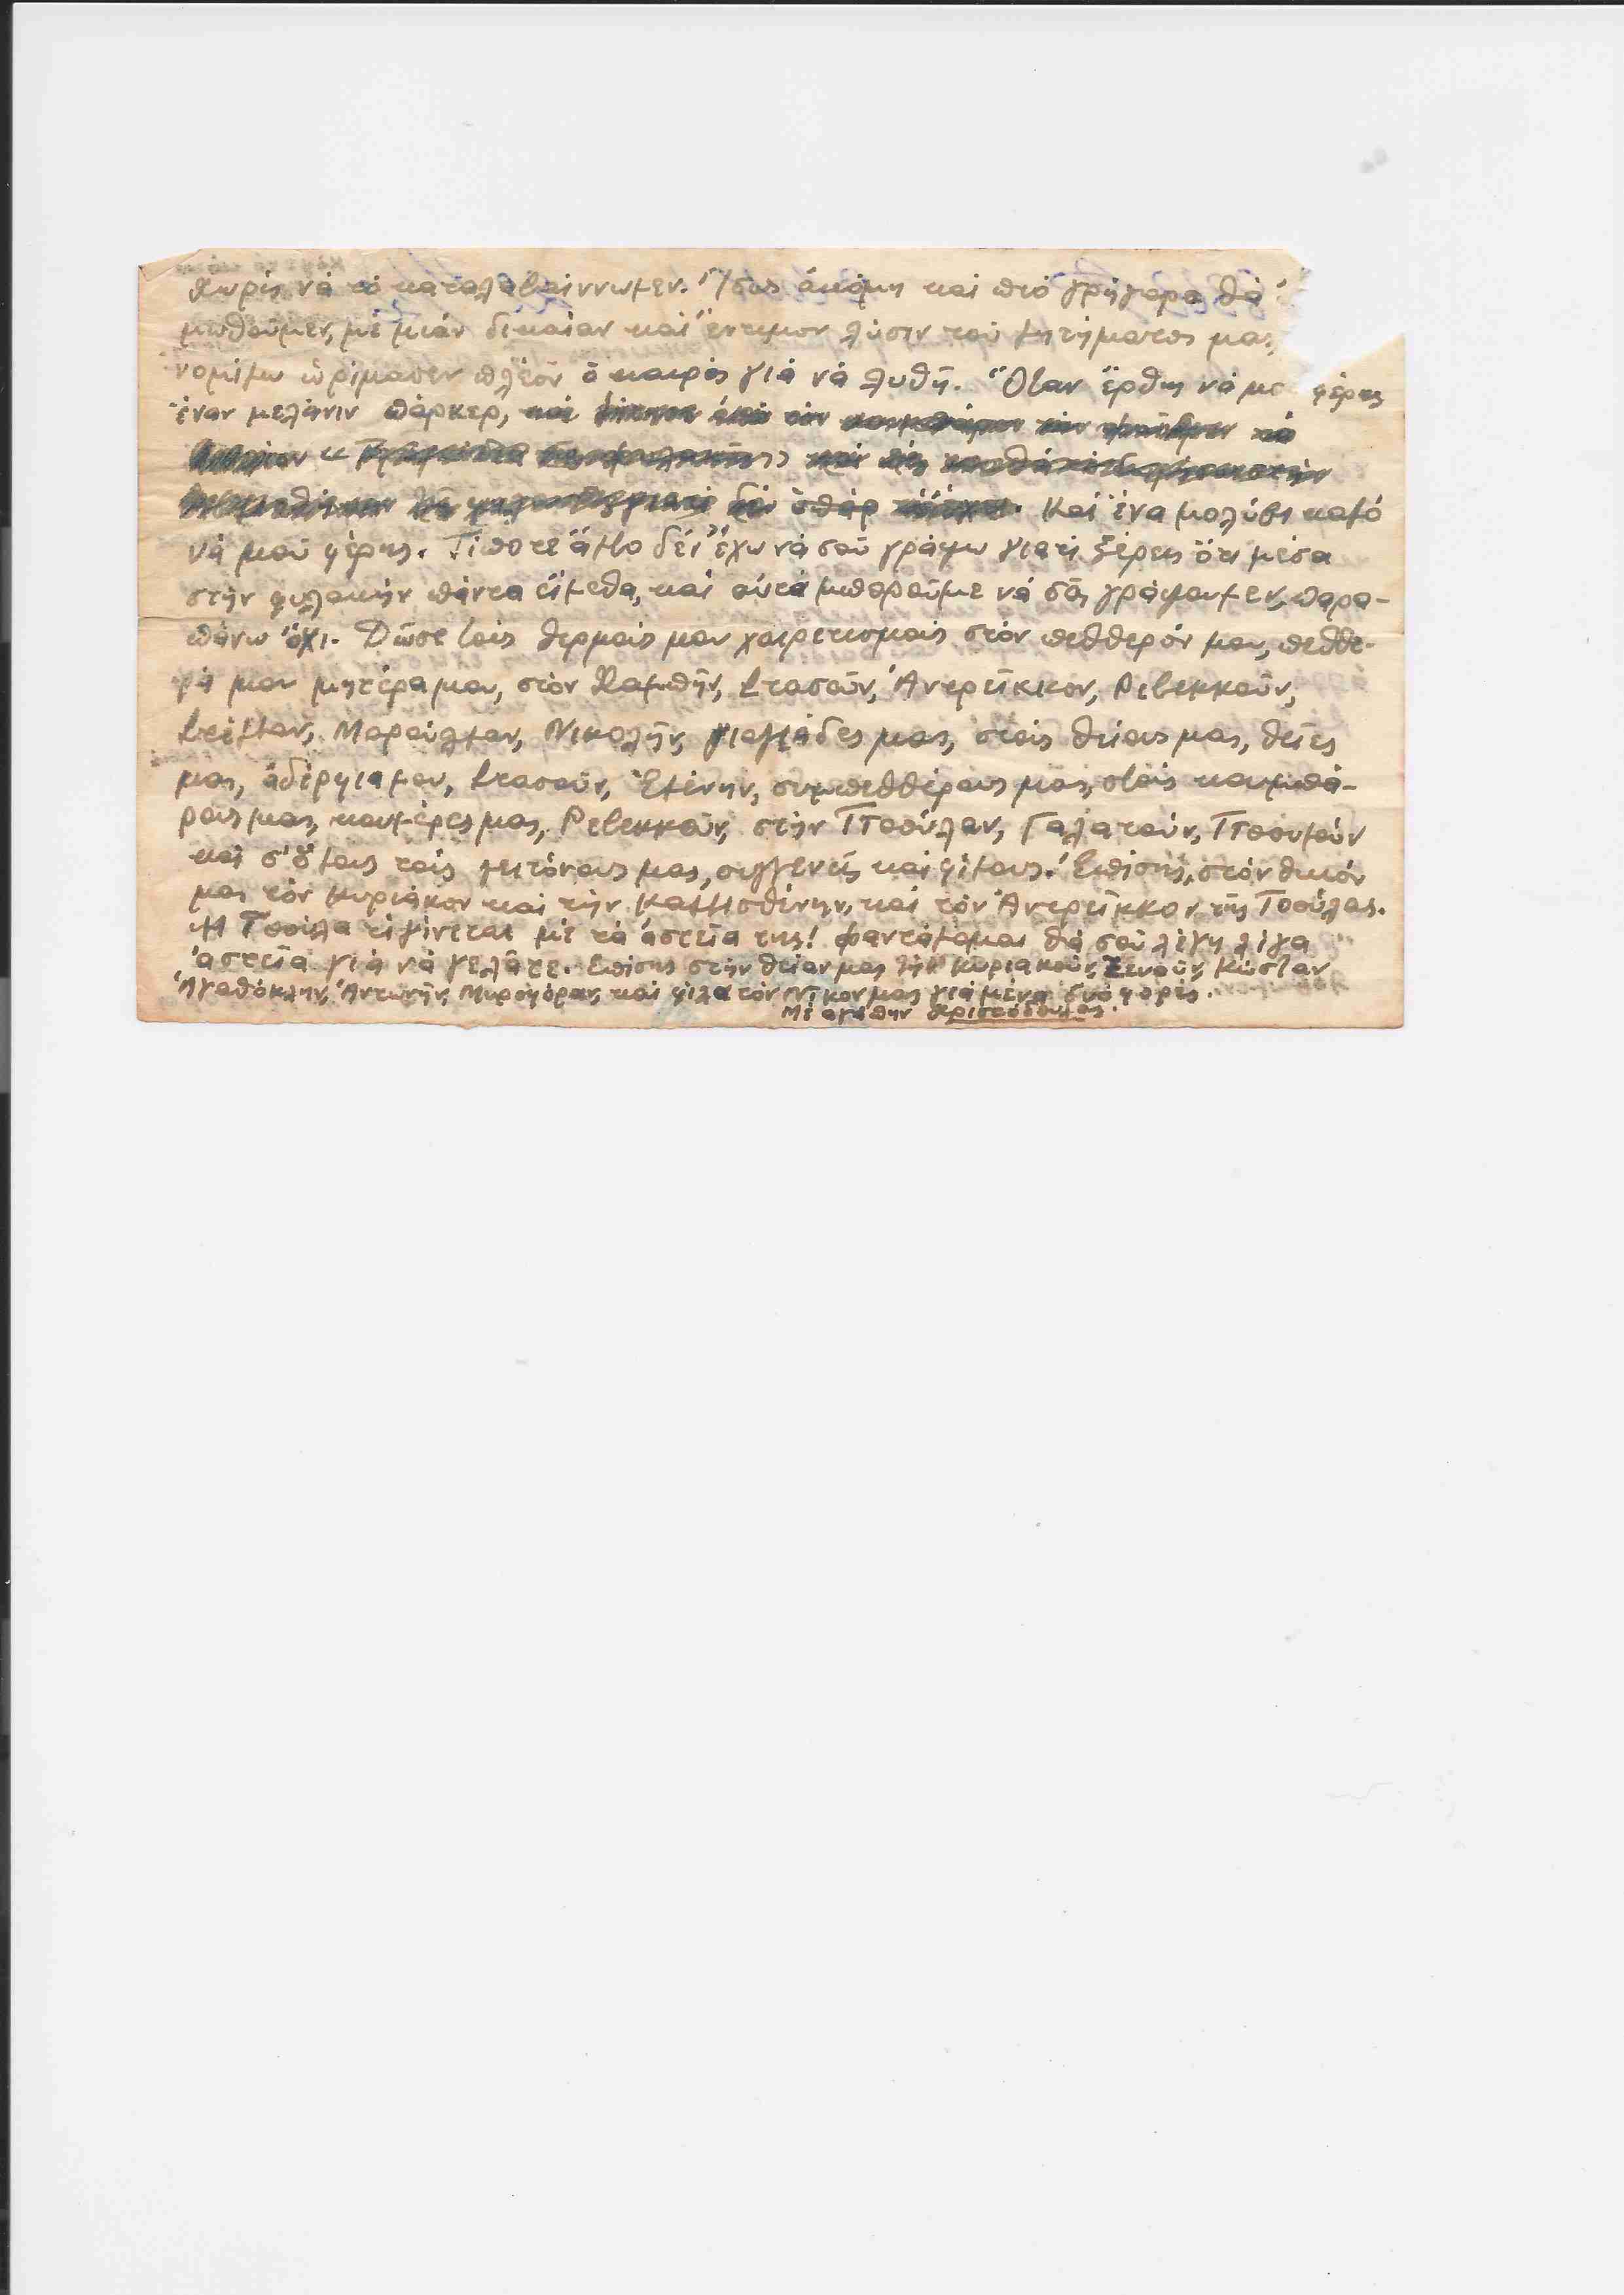 Χωρίς νά τό καταλαβαίννωμεν. Ἴσως ἀκόμη καί πιό γρήγορα θά
μωθοῦμεν, μέ μιάν δίκαίαν καί ἔντιμον λύσιν τοῦ ζητήματος μας,
νομίζω ὡρίμασεν πλέον ὁ καιρός γιά νά λυθῆ. Ὅταν ἔρθης νά μο φέρης
ἕναν μελάνιν πάρκερ,
Καί ἕνα μολύβι καλό
νά μοῦ φέρης. Τίποτε ἄλλο δέν ἔχω νά σοῦ γράψω γιατί ξέρεις ὅτι μέσα
στήν φυλακήν πάντα εἴμεθα, καί αὐτά μποροῦμε νά σᾶς γράψουμεν, παρα-
πάνω ὄχι. Δῶσε τούς θερμούς μου χαιρετισμούς στόν πεθθερόν μου, πεθθε-
ρά μου μητέρα μου, στόν Χαμπῆν, Στασοῦν, Ἀντρεῖκκον, Ρεβεκκοῦν,
Στέλλαν, Μαρούλλαν, Νικολῆν, γιαγιάδες μας, στούς θείους μας, θεῖες
μας, ἀδέρφια μου, Στασοῦν, Ἑλένην, συμπεθθέρους μας, στούς κουμπά-
ρους μας, κουμέρες μας, Ρεβεκκοῦν, στήν Ττοούλαν, Γαλατούν, Ττοουλούν
καί σ' ὅλους τούς γειτόνους μας, συγγενεῖς καί φίλους. Ἐπίσης, στόν θικόν
μας τόν Κυριάκον καί τήν Καλλισθένην, καί τόν Ἀντρεῖκκον τῆς Τσούλας.
Ἡ Τσούλα τί γίνεται μέ τά ἀστεῖα της! Φαντάζομαι θά σοῦ λέγη λίγα
ἀστεῖα γιά νά γελᾶτε. Ἐπίσης στήν θείαν μας τήν Κυριακοῦν, Ξενοῦν, Κώσταν
Ἀγαθόκλην, Ἀντωνῆν, Μυροφόραν, καί φίλα τόν Νῖκον μας γιά μένα δυό φορές.
Μέ ἀγάπην Χριστόδουλος.